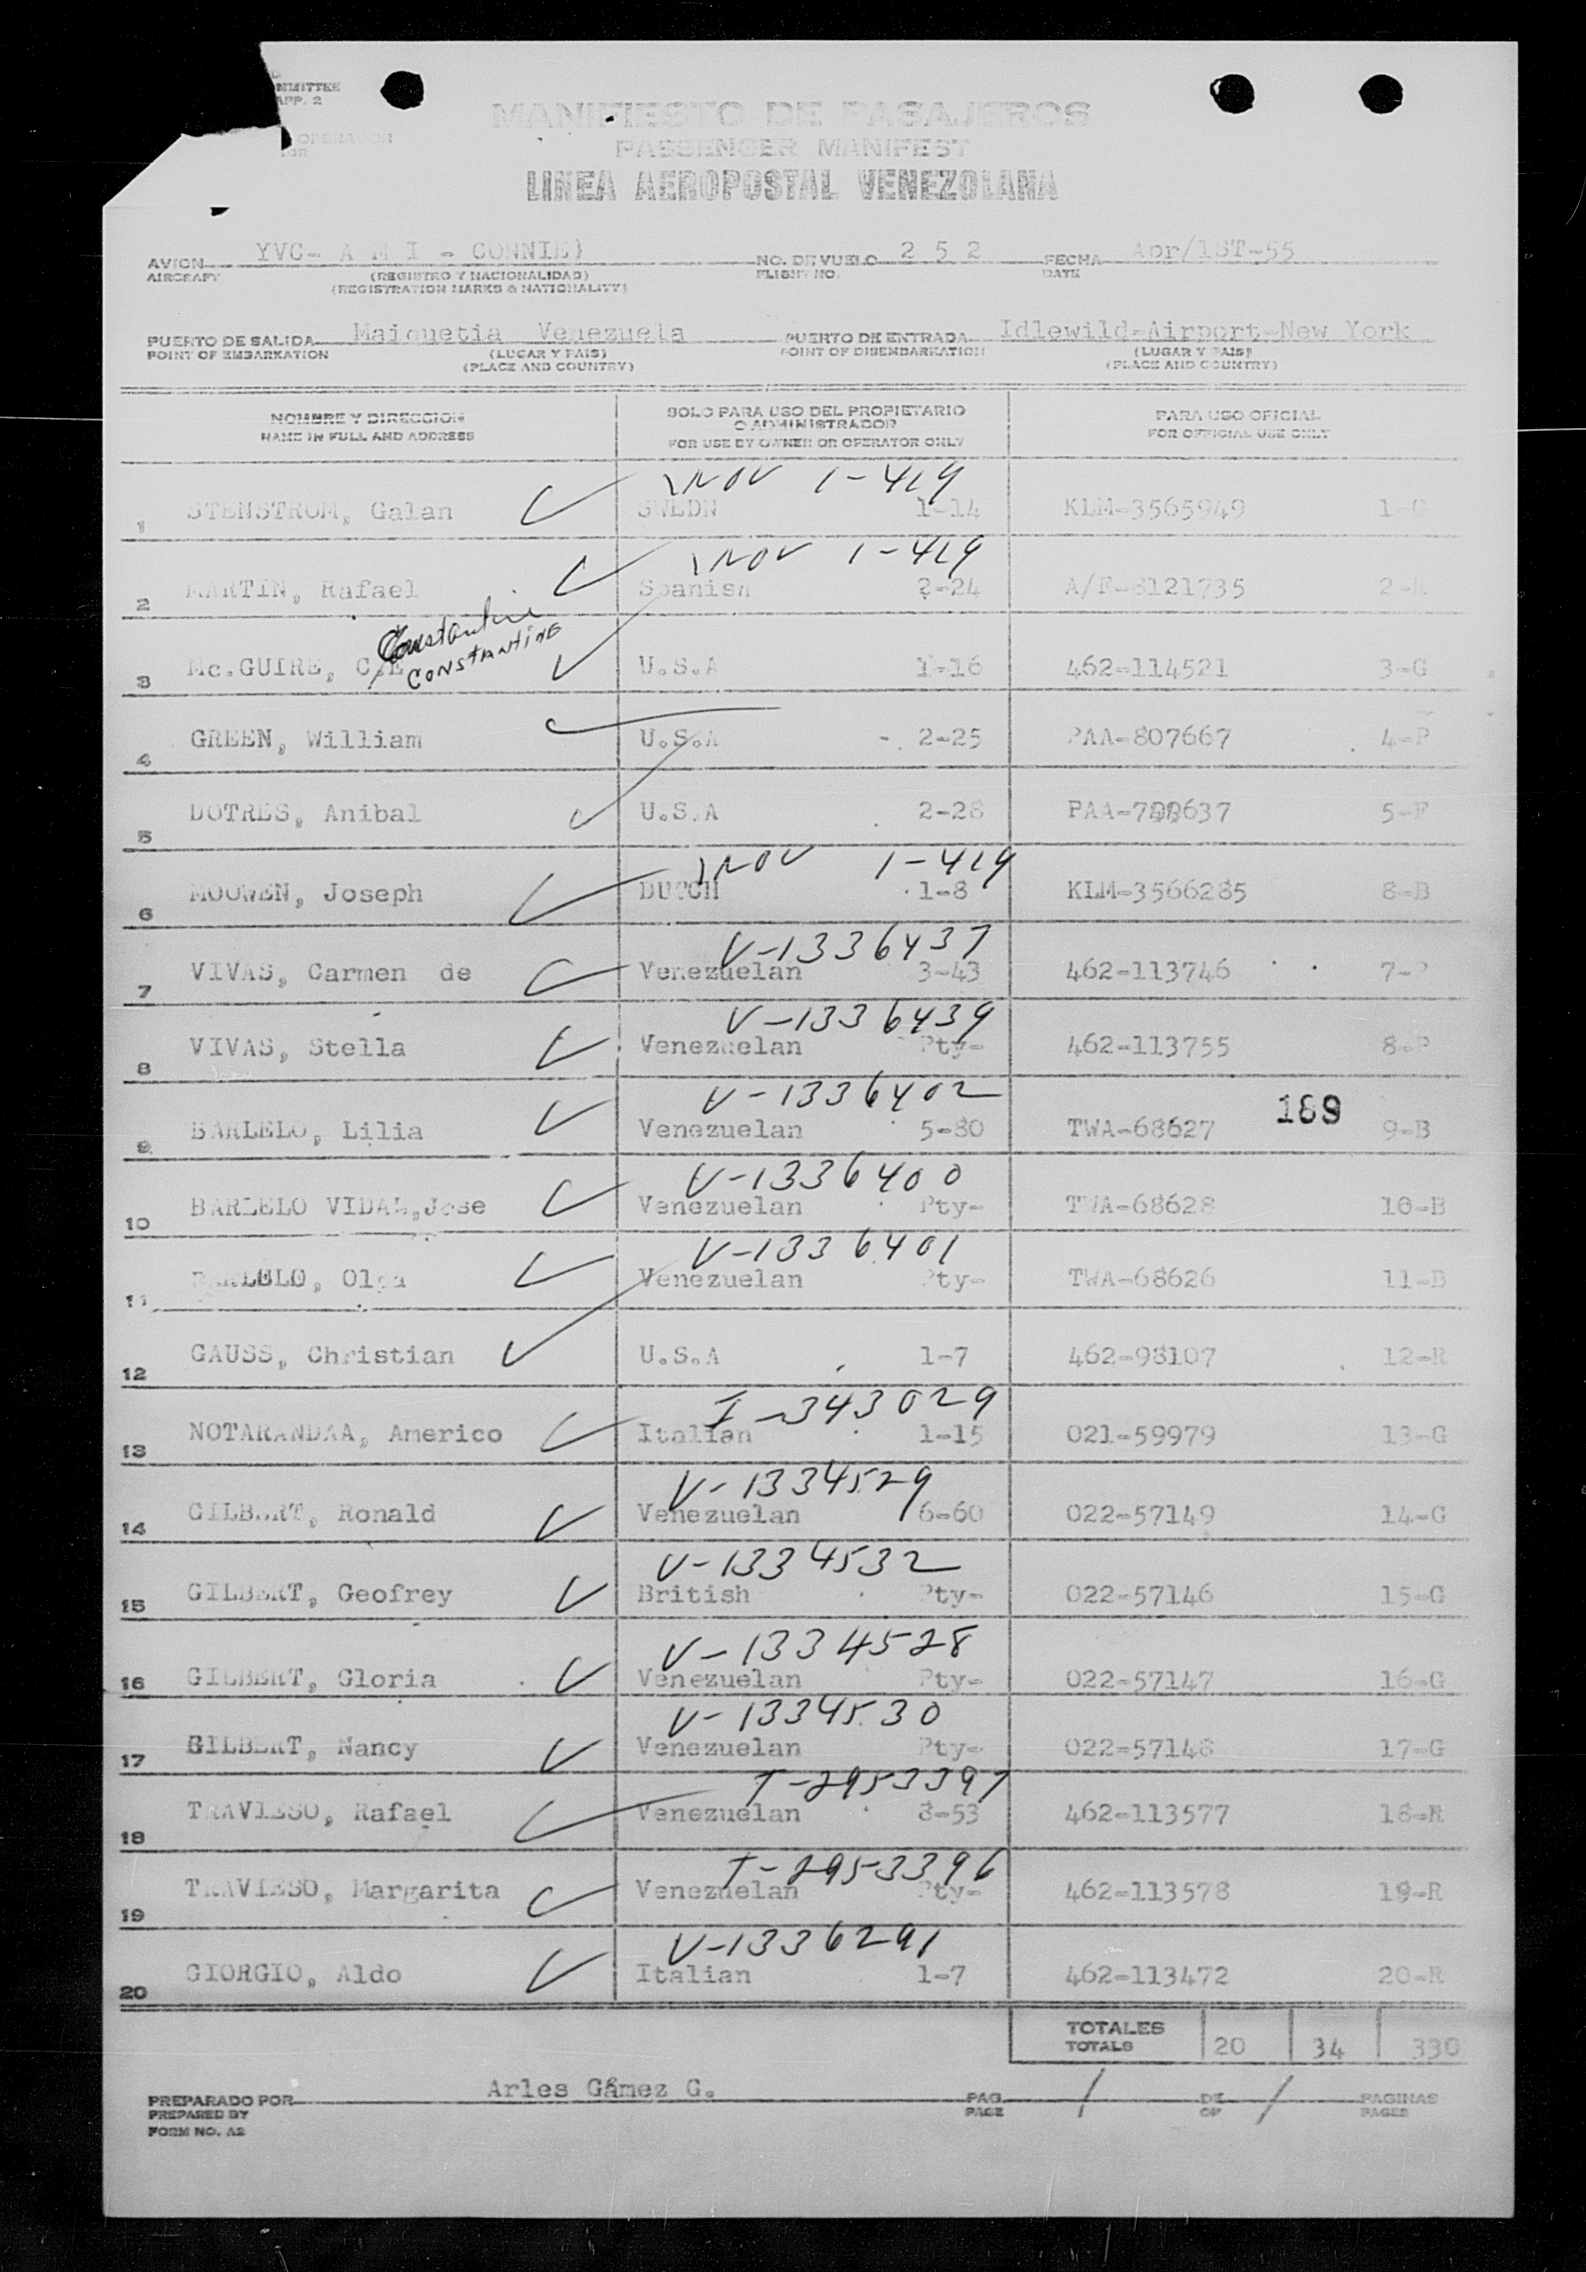 MMITTEE
APP. 2
OPERADOR
MANIFIESTO DE PASAJEROS
PASSENGER MANIFEST
LINEA AEROPOSTAL VENEZOLANA
AVION YVC- A M I - CONNIE) NO. DE VUELO 2 5 2 FECHA Apr/1ST-55
AIRCRAFT (REGISTRO Y NACIONALIDAD) FLIGHT NO. DATE
(REGISTRATION MARKS & NATIONALITY)
PUERTO DE SALIDA Maiquetia Venezuela PUERTO DE ENTRADA Idlewild-Airport-New York
POINT OF EMBARKATION (LUGAR Y PAIS) POINT OF DISEMBARKATION (LUGAR Y PAIS)
(PLACE AND COUNTRY) (PLACE AND COUNTRY)
NOMBRE Y DIRECCION SOLO PARA USO DEL PROPIETARIO PARA USO OFICIAL
O ADMINISTRADOR
NAME IN FULL AND ADDRESS FOR USE BY OWNER OR OPERATOR ONLY FOR OFFICIAL USE ONLY
1NOV 1-419
1 STENSTROM, Galan SWEDN 1-14 KLM-3565949 1-G
1NOV 1-419
2 MARTIN, Rafael Spanish 2-24 A/F-8121735
Constantine
CONSTANTINE
3 Mc.GUIRE, C/E U.S.A 1-16 462-114521 3-G
4 GREEN, William U.S.A - 2-25 PAA-807667 4-P
5 DOTRES, Anibal U.S.A 2-28 5-F
1NOV 1-419
6 MOOWEN, Joseph DUTCH 1-8 KLM-3566285 8-B
V-1336437
7 VIVAS, Carmen de Venezuelan 3-43 462-113746
V-1336439
8 VIVAS, Stella Venezuelan Pty- 462-113755 8-P
V-1336402
189
9 BARLELO, Lilia Venezuelan 5-80 TWA-68627 9-B
V-1336400
10 BARLELO VIDAL,Jose Venezuelan Pty- TWA-68628 10-B
V-1336401
11 BARLELO, Olga Venezuelan Pty- TWA-68626 11-B
12 GAUSS, Christian U.S.A 1-7 462-98107 12-R
I-343029
13 NOTARANDAA, Americo Italian 1-15 021-59979 13-G
V-1334529
14 GILBERT, Ronald Venezuelan 6-60 022-57149 14-G
V-1334532
15 GILBERT, Geofrey British Pty- 022-57146 15-G
V-1334528
16 GILBERT, Gloria Venezuelan Pty- 022-57147 16-G
V-1334530
17 GILBERT, Nancy Venezuelan Pty- 022-57148 17-G
T-2953397
18 TRAVIESO, Rafael Venezuelan 3-53 462-113577 18-R
T-2953396
19 TRAVIESO, Margarita Venezuelan Pty- 462-113578 19-R
V-1336291
20 GIORGIO, Aldo Italian 1-7 462-113472 20-R
TOTALES
TOTALS 20 34 330
PREPARADO POR Arles Gámez G. PAG. / DE / PAGINAS
PREPARED BY PAGE OF PAGES
FORM NO. A2